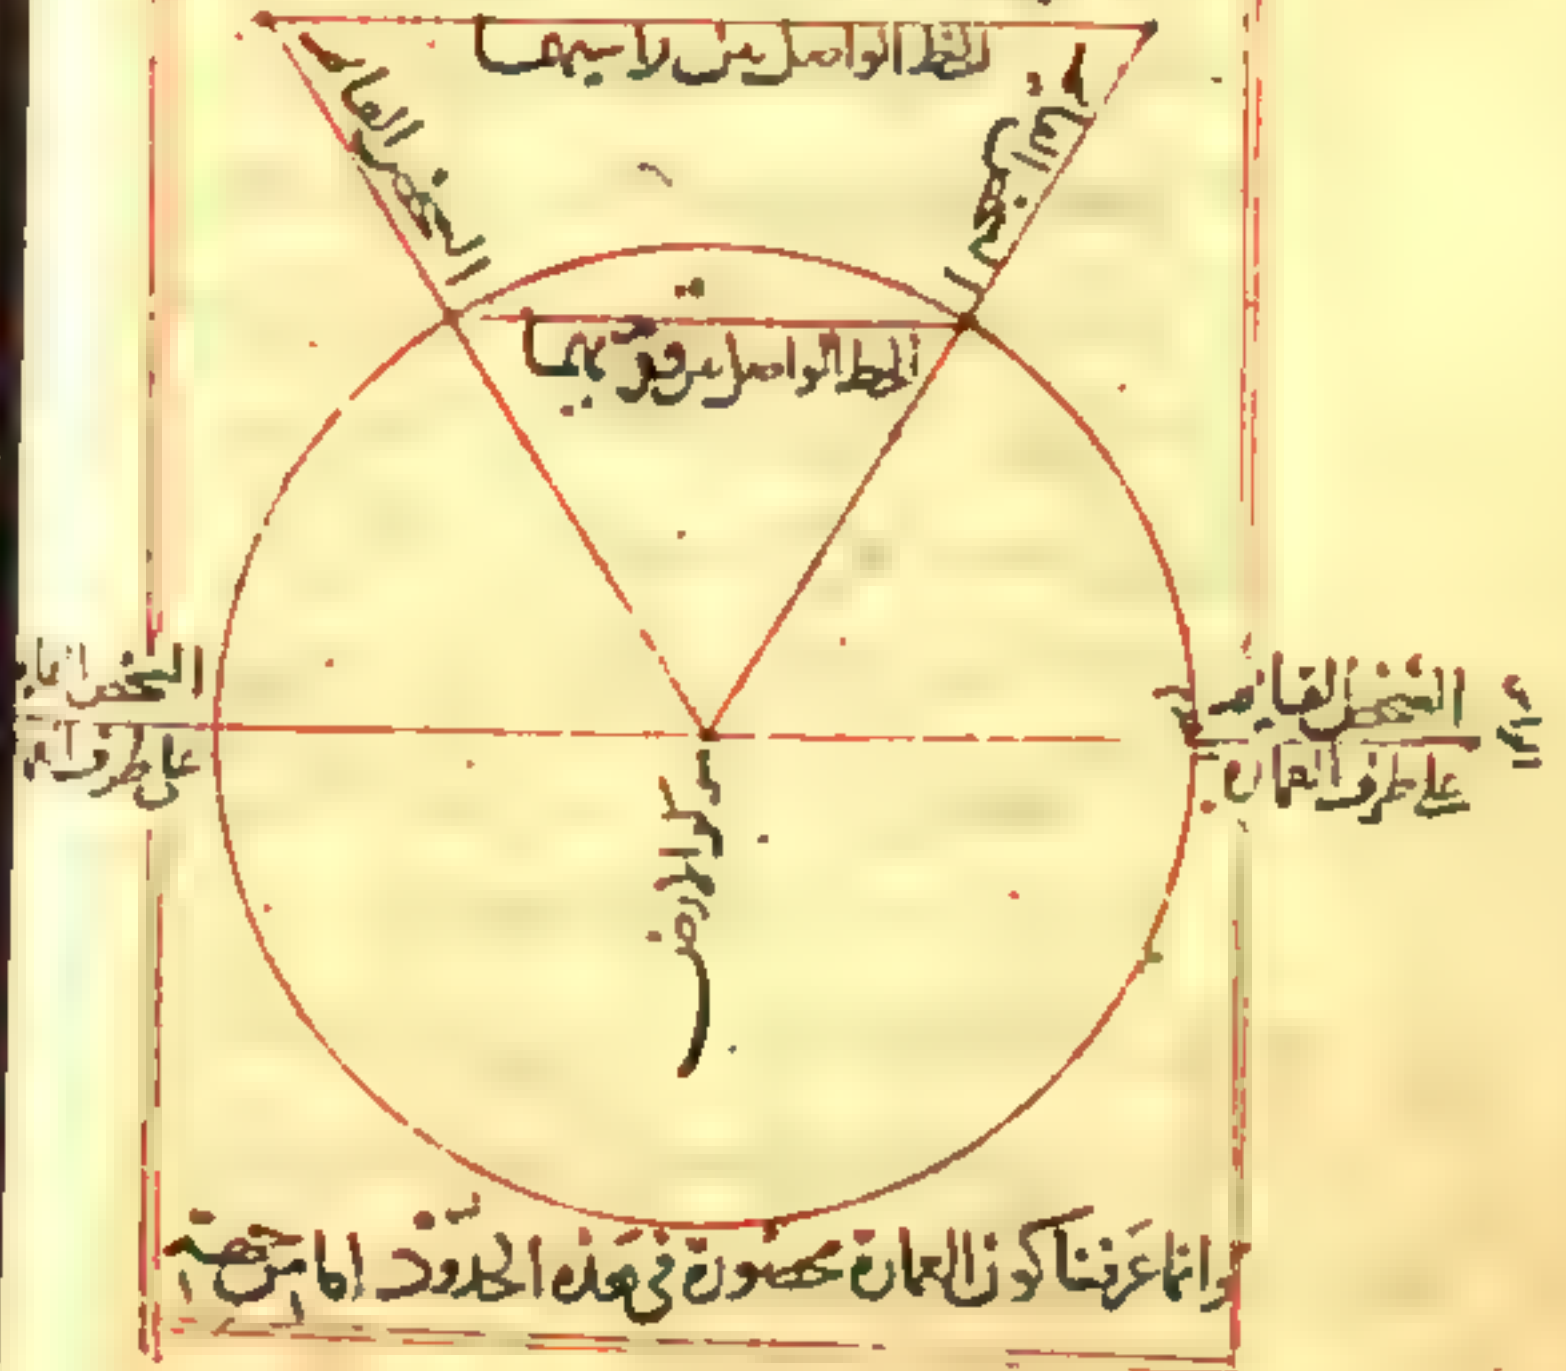 الخط الواصل بين راسيهما
الشخص القايم
الشخص القايم
الخط الواصل بين قدميهما
الشخص القايم
على طرف العمارة
الشخص
على طرف
مركز الارض
وانما عرفنا كون العمارة محصورة في هذه الحدود اما من جهة